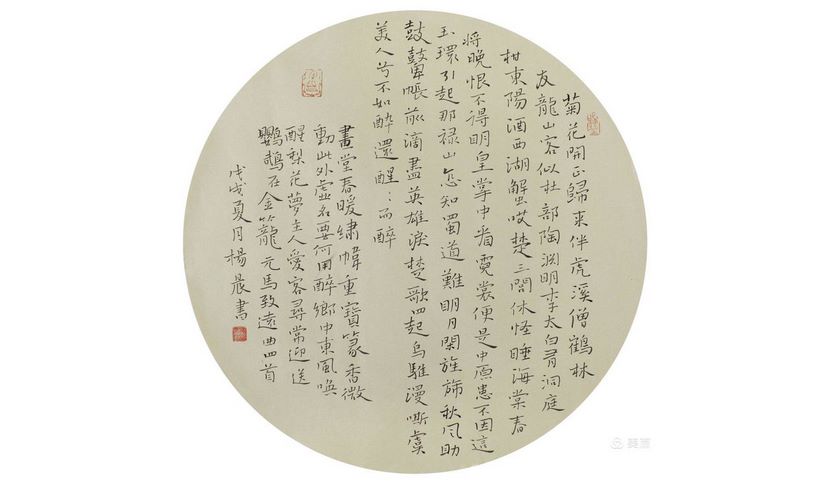 菊花開正歸来伴虎溪僧鶴林
友龍山客似杜部陶渊明李太白有洞庭
柑東陽酒西湖蟹哎楚三閭休怪睡海棠春
将晚恨不得明皇掌中看霓裳便是中原患不因這
玉環引起那禄山怎知蜀道難明月閑旌旆秋风助
鼓鼙帳前滴盡英雄淚楚歌四起烏騅漫嘶虞
美人兮不如醉還醒：而醉
畫堂春暖繡幃重寶篆香微
動此外虚名要何用醉鄉中東風唤
醒梨花夢主人愛客尋常迎送
鸚鵡在金籠 元馬致遠曲四首
戊戌夏月楊晨書